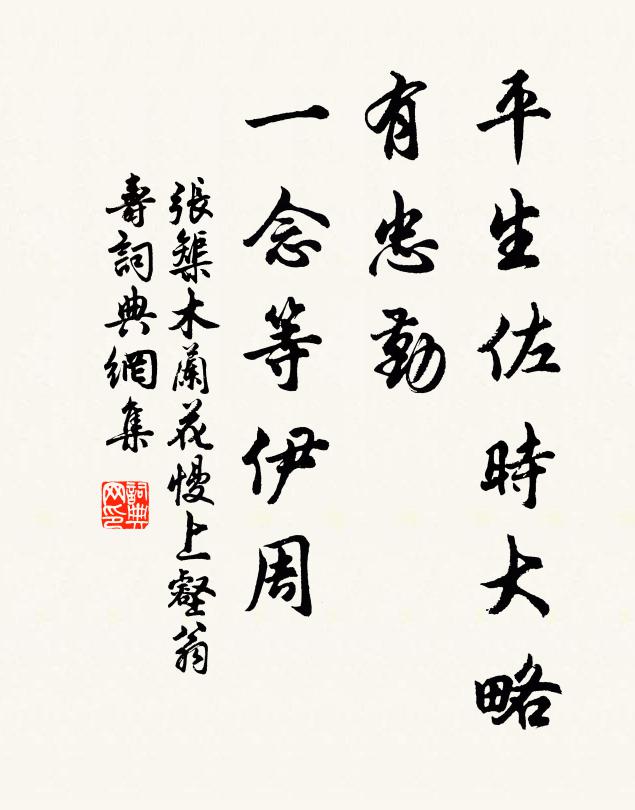 平生佐時大略
有忠勤
一念等伊周
張榘木蘭花慢上壑翁
壽詞典網集
詞典
网印